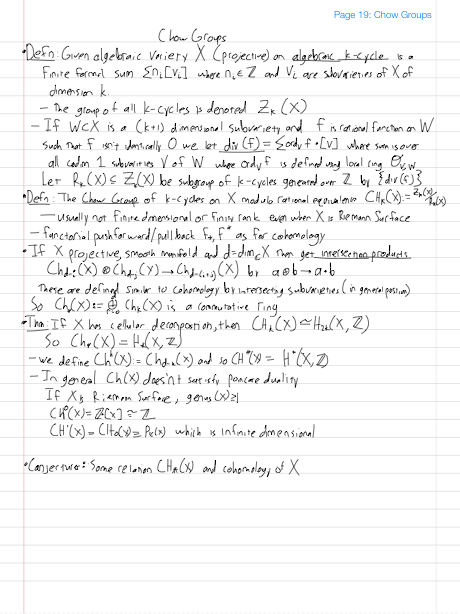 Page 19: Chow Groups
Chow Groups
• Defn: Given algebraic variety X (projective) an algebraic k-cycle is a
finite formal sum Σnᵢ[Vᵢ] where nᵢ∈ℤ and Vᵢ are subvarieties of X of
dimension k.
– The group of all k-cycles is denoted Z_k(X)
– If W⊂X is a (k+1) dimensional subvariety and f is rational function on W
such that f isn't identically 0 we let div(f) = Σord_V f · [V] where sum is over
all codim 1 subvarieties V of W where ord_V f is defined using local ring O_{V,W}
Let R_k(X) ⊆ Z_k(X) be subgroup of k-cycles generated over ℤ by {div(f)}
• Defn: The Chow Group of k-cycles on X modulo rational equivalence CH_k(X) := Z_k(X)/R_k(X)
– usually not finite dimensional or finite rank even when X is Riemann Surface
– functorial pushforward/pull back f_*, f^* as for cohomology
• If X projective, smooth manifold and d=dim_ℂ X then get intersection products
Ch_{d-i}(X) ⊗ Ch_{d-j}(X) → Ch_{d-(i+j)}(X) by a⊗b → a·b
These are defined similar to cohomology by intersecting subvarieties (in general position)
So Ch(X) := ⊕ Ch_k(X) is a commutative ring
• Thm: If X has cellular decomposition, then CH_k(X) ≃ H_{2k}(X, ℤ)
So Ch_*(X) = H_*(X, ℤ)
– we define Ch^k(X) = Ch_{d-k}(X) and so CH^*(X) = H^*(X, ℤ)
– In general Ch(X) doesn't satisfy poncare duality
If X is Riemann Surface, genus(X) ≥ 1
Ch^0(X) = ℤ[X] ≃ ℤ
CH^1(X) = CH_0(X) ≃ Pic(X) which is infinite dimensional
• Conjecture: Some relation CH_k(X) and cohomology of X